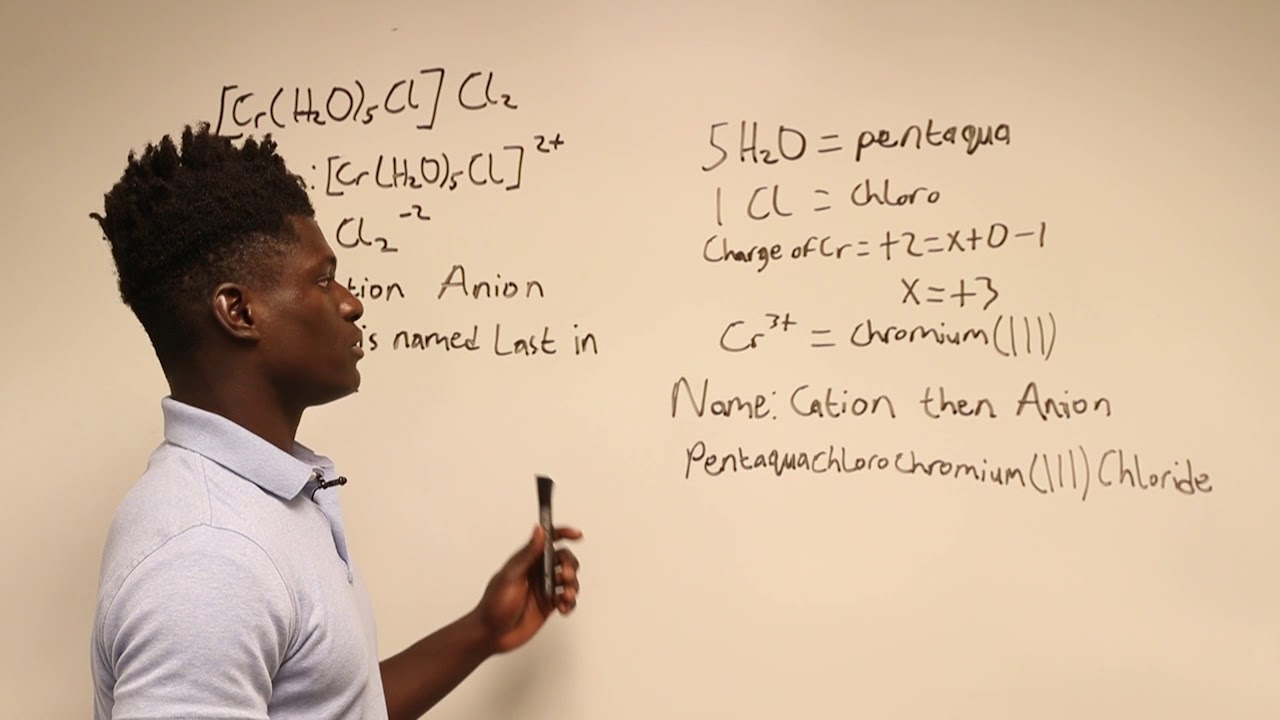 [Cr(H₂O)₅Cl]Cl₂
: [Cr(H₂O)₅Cl]²⁺
Cl₂⁻²
Anion
is named Last in
5H₂O = pentaqua
1 Cl = chloro
Charge of Cr = +2 = x+0-1
x = +3
Cr³⁺ = chromium(III)
Name: Cation then Anion
Pentaquachlorochromium(III) Chloride